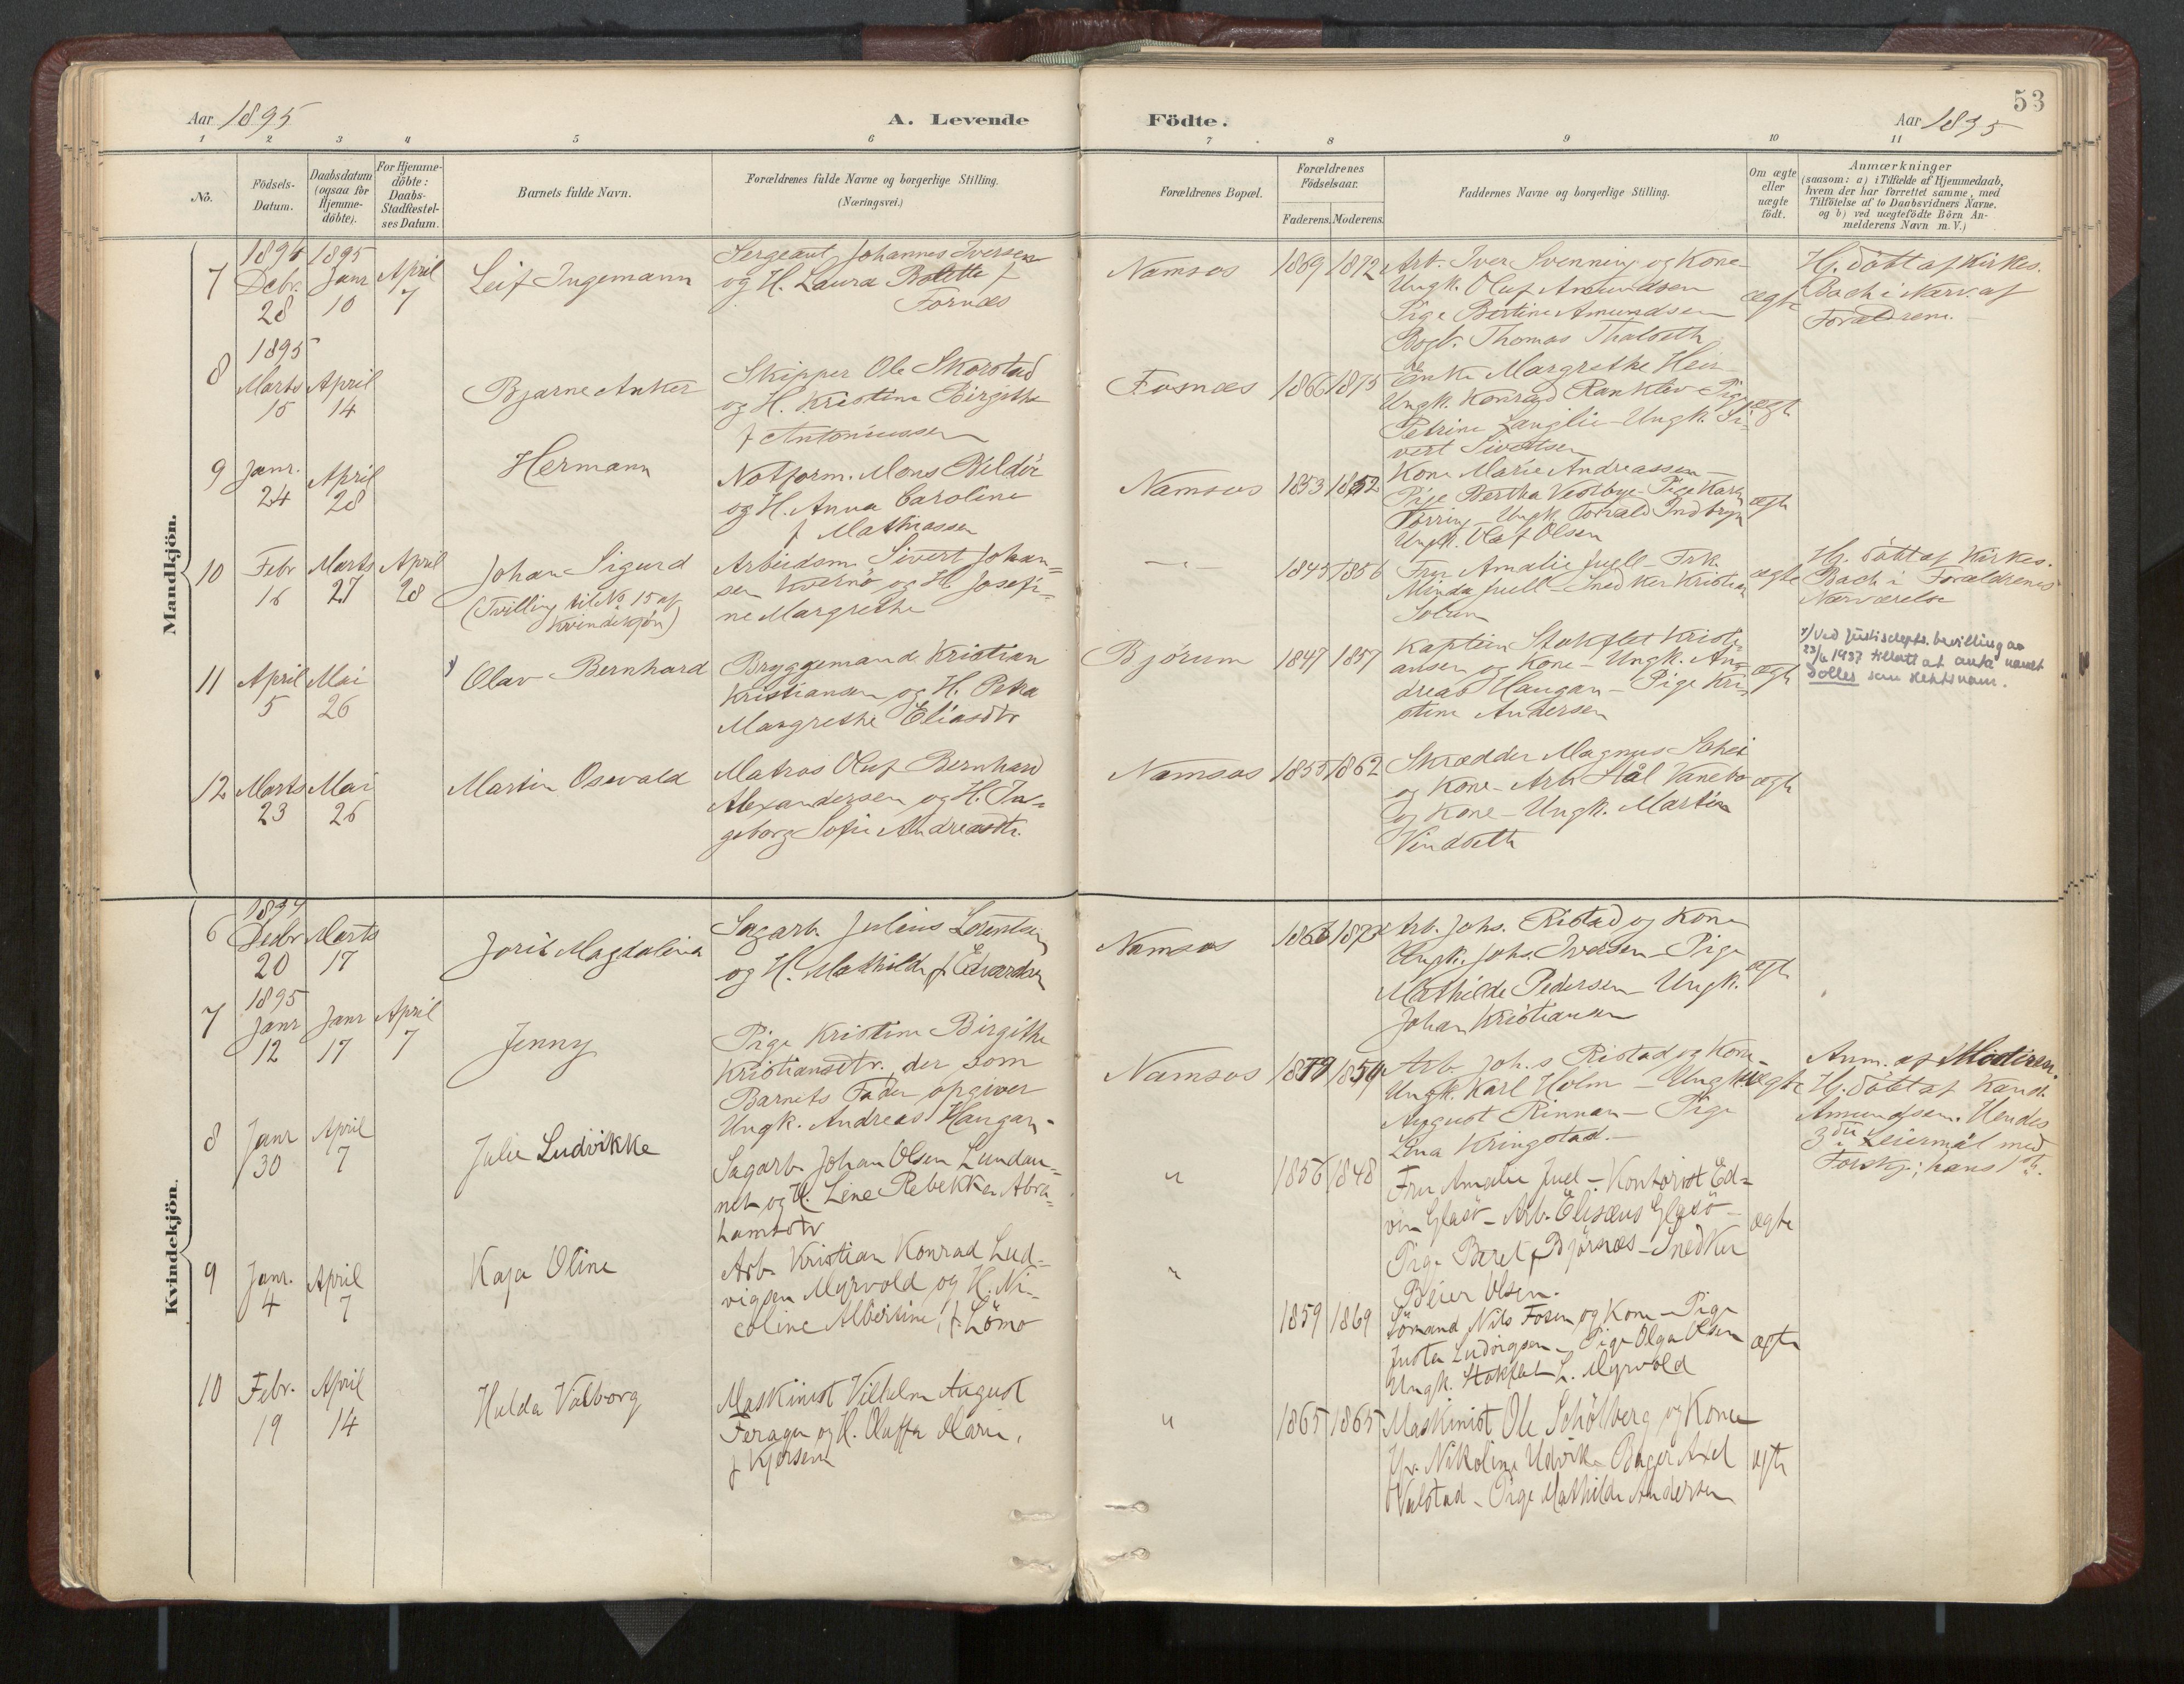 53
Aar 1895
A. Levende
Födte.
Aar 1895
1 2 3 4 5 6 7 8 9 10 11
No.
Födsels-
Datum.
Daabsdatum
(ogsaa for
Hjemme-
döbte).
For Hjemme-
döbte:
Daabs-
Stadfæstel-
ses Datum.
Barnets fulde Navn.
Forældrenes fulde Navne og borgerlige Stilling.
(Næringsvei.)
Forældrenes Bopæl.
Forældrenes
Födselsaar.
Faderens. Moderens.
Faddernes Navne og borgerlige Stilling.
Om ægte
eller
uægte
födt.
Anmærkninger
(saasom: a) i Tilfælde af Hjemmedaab,
hvem der har forrettet samme, med
Tilföielse af to Daabsvidners Navne,
og b) ved uægtefödte Börn An-
melderens Navn m. V.)
Mandkjön.
7
1894
Debr.
28
1895
Janr
10
April
7
Leif Ingemann
Sergeant Johannes Iversen
og H. Laura Bolette f
Fornæs
Namsos
1869 1872
Arb. Iver Svenning og Kone
Ungk. Oluf Amundsen
Pige Bertine Amundsen
Bogb. Thomas Thalseth
ægte
Hj. döbt af Kirkes.
Bach i Nærv. af
Forældrene.
8
1895
Marts
15
April
14
Bjarne Anker
Skipper Ole Skorstad
og H. Kristine Birgithe
f Antoniussen
Fosnæs
1866 1875
Enke Margrethe Hein
Ungk. Konrad Ranklev - Pige
Petrine Langlie - Ungk. Si-
vert Sivertsen
ægte
9
Janr.
24
April
28
Hermann
Notform. Mons Bildöe
og H. Anna Caroline
f Mathiassen
Namsos
1853 1852
Kone Marie Andreassen -
Pige Bertha Vestbye - Pige Karen
Törring - Ungk. Torvald Indbryn
Ungk. Olaf Olsen
ægte
10
Febr
16
Marts
27
April
28
Johan Sigurd
(Tvilling til No 15 af
Kvindekjön)
Arbeidsm. Sivert Johan-
sen Kvernö og H. Josefi-
ne Margrethe
- " -
1845 1856
Fru Amalie Juell - Frk.
Minda Juell - Snedker Kristian
Solum
ægte
Hj. döbt af Kirkes.
Bach i Forældrenes
Nærværelse
11
April
5
Mai
26
Olav Bernhard
Bryggemand Kristian
Kristiansen og H. Petra
Margrethe Eliasdtr
Bjórum
1847 1857
Kaptein Stokflet Kristi-
ansen og Kone - Ungk. An-
dreas Haugan - Pige Kri-
stine Andersen
ægte
x/ Ved Justisdepts. bevilling av
23/6 1937 tillatt at anta navnet
Solles som slektsnavn.
12
Marts
23
Mai
26
Martin Osevald
Matros Oluf Bernhard
Alexandersen og H. In-
geborg Sofie Andreasdtr.
Namsos
1855 1862
Skrædder Magnus Schei
og Kone - Arb. Stål Vanebo
og Kone - Ungk. Martin
Vindseth
ægte
Kvindekjön.
6
1894
Decbr
20
Marts
17
Jorit Magdalena
Sagarb. Julius Lorentsen
og H. Mathilde f Edvardsen
Namsos
Arb. Johs. Ristad og Kone
Ungk. Johs. Iversen - Pige
Mathilde Pedersen - Ungk.
Johan Kristiansen
ægte
7
1895
Janr
12
Janr
17
April
7
Jenny
Pige Kristine Birgithe
Kristiansdtr., der som
Barnets Fader opgiver
Ungk. Andreas Haugan -
Namsos
Arb. Joh.s Ristad og Kone -
Ungk. Karl Holm - Ungk.
August Rinnan - Pige
Lina Kringstad. -
uægte
Anm. af Moderen.
Hj. döbt af Kand.
Amundsen. Hendes
3die Leiermål med
Forskj; hans 1ste.
8
Janr
30
April
7
Julie Ludvikke
Sagarb. Johan Olsen Lundan-
net og H. Line Rebekka Abra-
hamsdtr
"
1856 1848
Fru Amalie Juel - Kontorist Ed-
vin Glasö - Arb. Elisæus Glasö -
Pige Beret Björnæs - Snedker
Beier Olsen.
ægte
9
Janr.
4
April
7
Kaja Oline
Arb. Kristian Konrad Lud-
vigsen Myrvold og H. Ni-
coline Albertine, f. Lömo
"
1859 1869
Sömand Nils Fosen og Kone - Pige
Justa Ludvigsen - Pige Olga Olsen
Ungk. Stokflet L. Myrvold
ægte
10
Febr.
19
April
14
Hulda Valborg
Maskinist Vilhelm August
Feragen og H. Oluffa Marie,
f Kjersem
"
1865 1865
Maskinist Ole Schölberg og Kone
Nikoline Udvik - Bager Axel
Valstad - Pige Mathilde Andersen
ægte